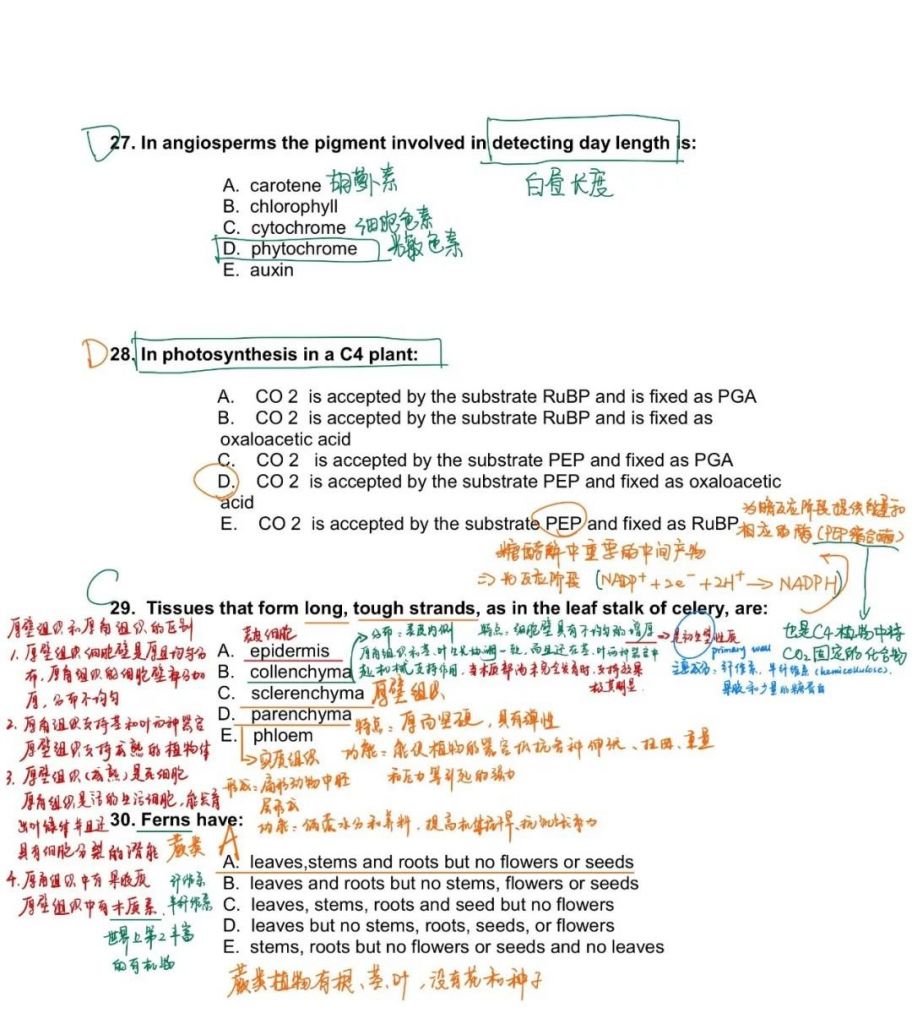 27. In angiosperms the pigment involved in detecting day length is:
D
白昼长度
A. carotene 胡萝卜素
B. chlorophyll
C. cytochrome 细胞色素
D. phytochrome 光敏色素
E. auxin
D
28. In photosynthesis in a C4 plant:
A. CO 2 is accepted by the substrate RuBP and is fixed as PGA
B. CO 2 is accepted by the substrate RuBP and is fixed as
oxaloacetic acid
C. CO 2 is accepted by the substrate PEP and fixed as PGA
D. CO 2 is accepted by the substrate PEP and fixed as oxaloacetic
acid
E. CO 2 is accepted by the substrate PEP and fixed as RuBP
为暗反应阶段提供能量和
相应的酶(PEP羧合酶)
糖酵解中重要的中间产物
⇒ 光反应阶段 (NADP⁺+2e⁻+2H⁺→NADPH)
也是C4植物中将
CO₂固定的化合物
C
29. Tissues that form long, tough strands, as in the leaf stalk of celery, are:
A. epidermis 表皮细胞
B. collenchyma
C. sclerenchyma 厚壁组织
D. parenchyma
E. phloem
分布:表皮内侧 特点:细胞壁具有不均匀的增厚
primary wall
主要成分:纤维素,半纤维素(hemicellulose),
果胶和少量的糖蛋白
特点:厚而坚硬,具有弹性
功能:能使植物的器官抵抗各种伸张、扭曲、重量
和压力等引起的张力
厚壁组织和厚角组织的区别
1. 厚壁组织细胞壁是厚且均匀分
布,厚角组织的细胞壁部分加
厚,分布不均匀
2. 厚角组织支持茎和叶两种器官
厚壁组织支持成熟的植物体
3. 厚壁组织(成熟)是死细胞
厚角组织是活的生活细胞,能长着
出叶绿体并且还
具有细胞分裂的潜能
4. 厚角组织中有果胶质 纤维素
厚壁组织中有木质素 半纤维素
世界上第2丰富
的有机物
30. Ferns have:
蕨类 A
A. leaves,stems and roots but no flowers or seeds
B. leaves and roots but no stems, flowers or seeds
C. leaves, stems, roots and seed but no flowers
D. leaves but no stems, roots, seeds, or flowers
E. stems, roots but no flowers or seeds and no leaves
蕨类植物有根、茎、叶,没有花和种子